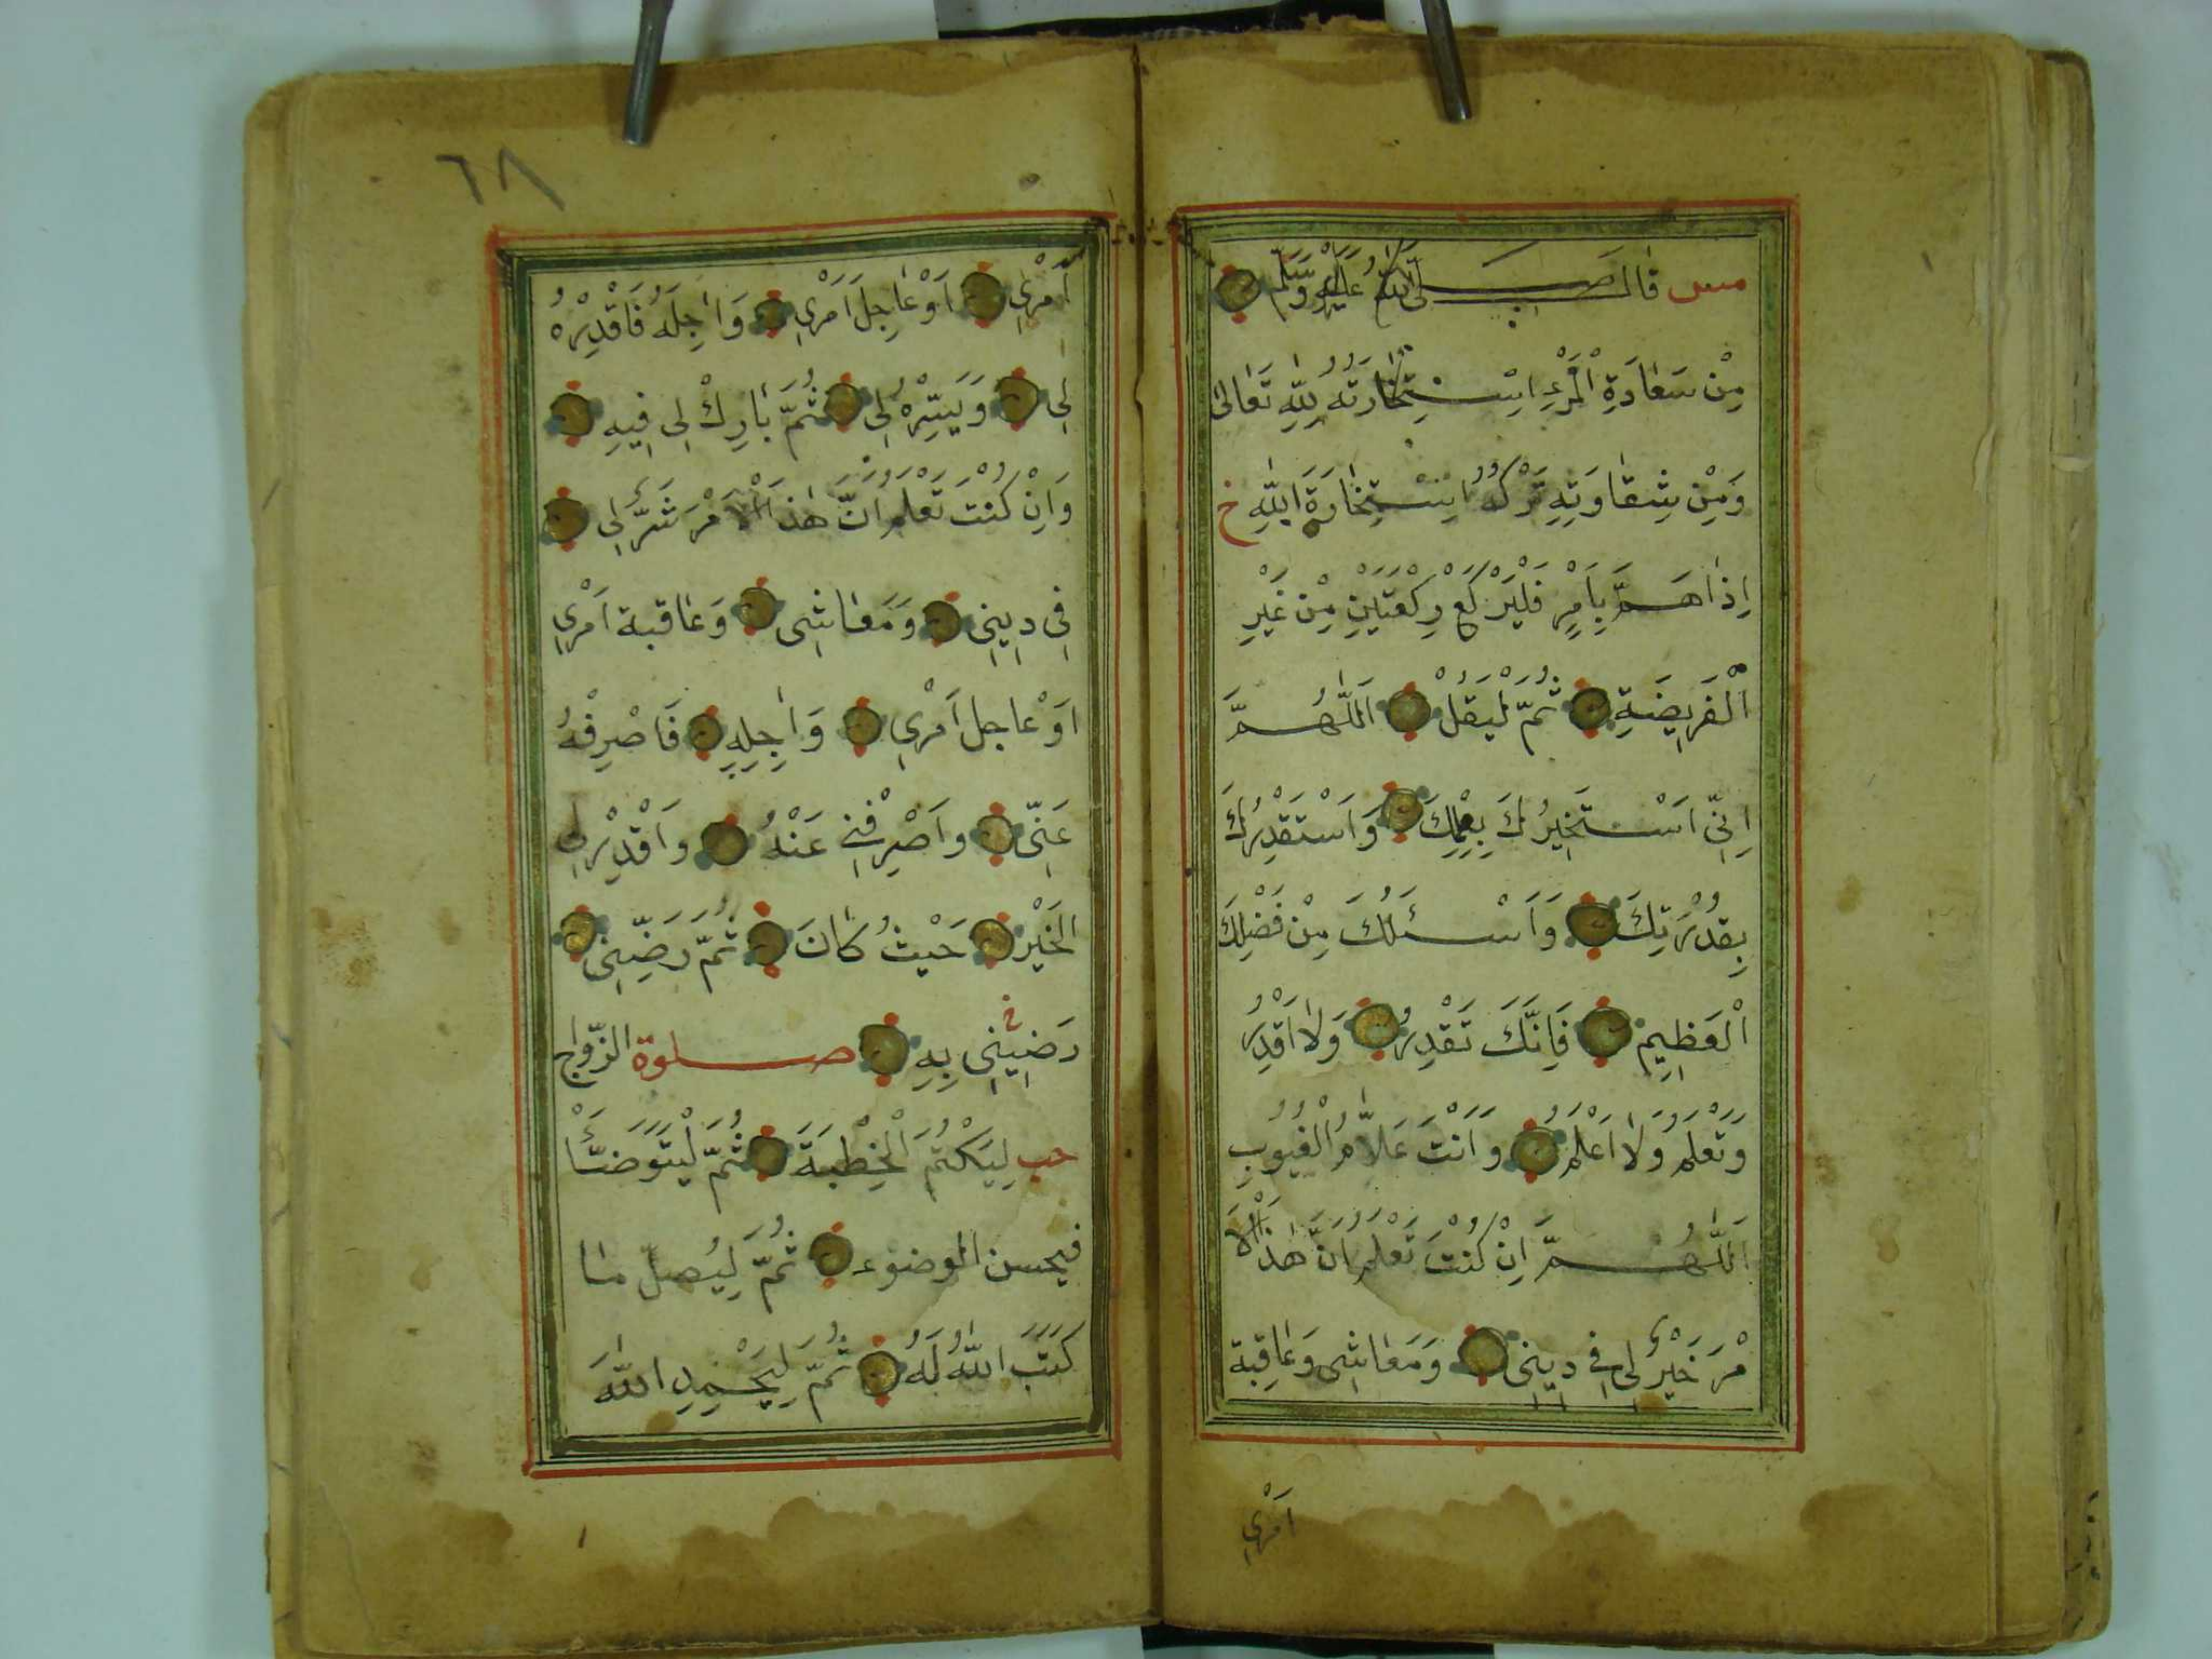 مس قال صلى الله عليه وسلم
مِنْ سَعَادَةِ الْمَرْءِ اسْتِخَارَتُهُ لِلّٰهِ تَعَالٰى
وَمِنْ شِقَاوَتِهِ تَرْكُهُ اسْتِخَارَةَ اللّٰهِ خ
اِذَا هَمَّ بِاَمْرٍ فَلْيَرْكَعْ رَكْعَتَيْنِ مِنْ غَيْرِ
الْفَرِيضَةِ ثُمَّ لْيَقُلْ اَللّٰهُمَّ
اِنِّي اَسْتَخِيرُكَ بِعِلْمِكَ وَاَسْتَقْدِرُكَ
بِقُدْرَتِكَ وَاَسْئَلُكَ مِنْ فَضْلِكَ
الْعَظِيمِ فَاِنَّكَ تَقْدِرُ وَلَا اَقْدِرُ
وَتَعْلَمُ وَلَا اَعْلَمُ وَاَنْتَ عَلَّامُ الْغُيُوبِ
اَللّٰهُمَّ اِنْ كُنْتَ تَعْلَمُ اَنَّ هٰذَا الْاَ
مْرَ خَيْرٌ لِي فِي دِينِي وَمَعَاشِي وَعَاقِبَة
اَمْرِي
٦٨
اَمْرِي اَوْ عَاجِلَ اَمْرِي وَاٰجِلَهُ فَاقْدِرْهُ
لِي وَيَسِّرْهُ لِي ثُمَّ بَارِكْ لِي فِيهِ
وَاِنْ كُنْتَ تَعْلَمُ اَنَّ هٰذَا الْاَمْرَ شَرٌّ لِي
فِي دِينِي وَمَعَاشِي وَعَاقِبَة اَمْرِي
اَوْ عَاجِل اَمْرِي وَاٰجِلِهِ فَاصْرِفْهُ
عَنِّي وَاصْرِفْنِي عَنْهُ وَاقْدِرْ لِي
الْخَيْرَ حَيْثُ كَانَ ثُمَّ رَضِّنِي
رَضِّينِي بِهِ خ صلوة الزّواج
حب لِيَكْتُمِ الْخِطْبَةَ ثُمَّ لْيَتَوَضَّأْ
فيحسن الوضوء ثُمَّ لِيُصَلِّ مَا
كَتَبَ اللّٰهُ لَهُ ثُمَّ لِيَحْمِدِ اللّٰهَ